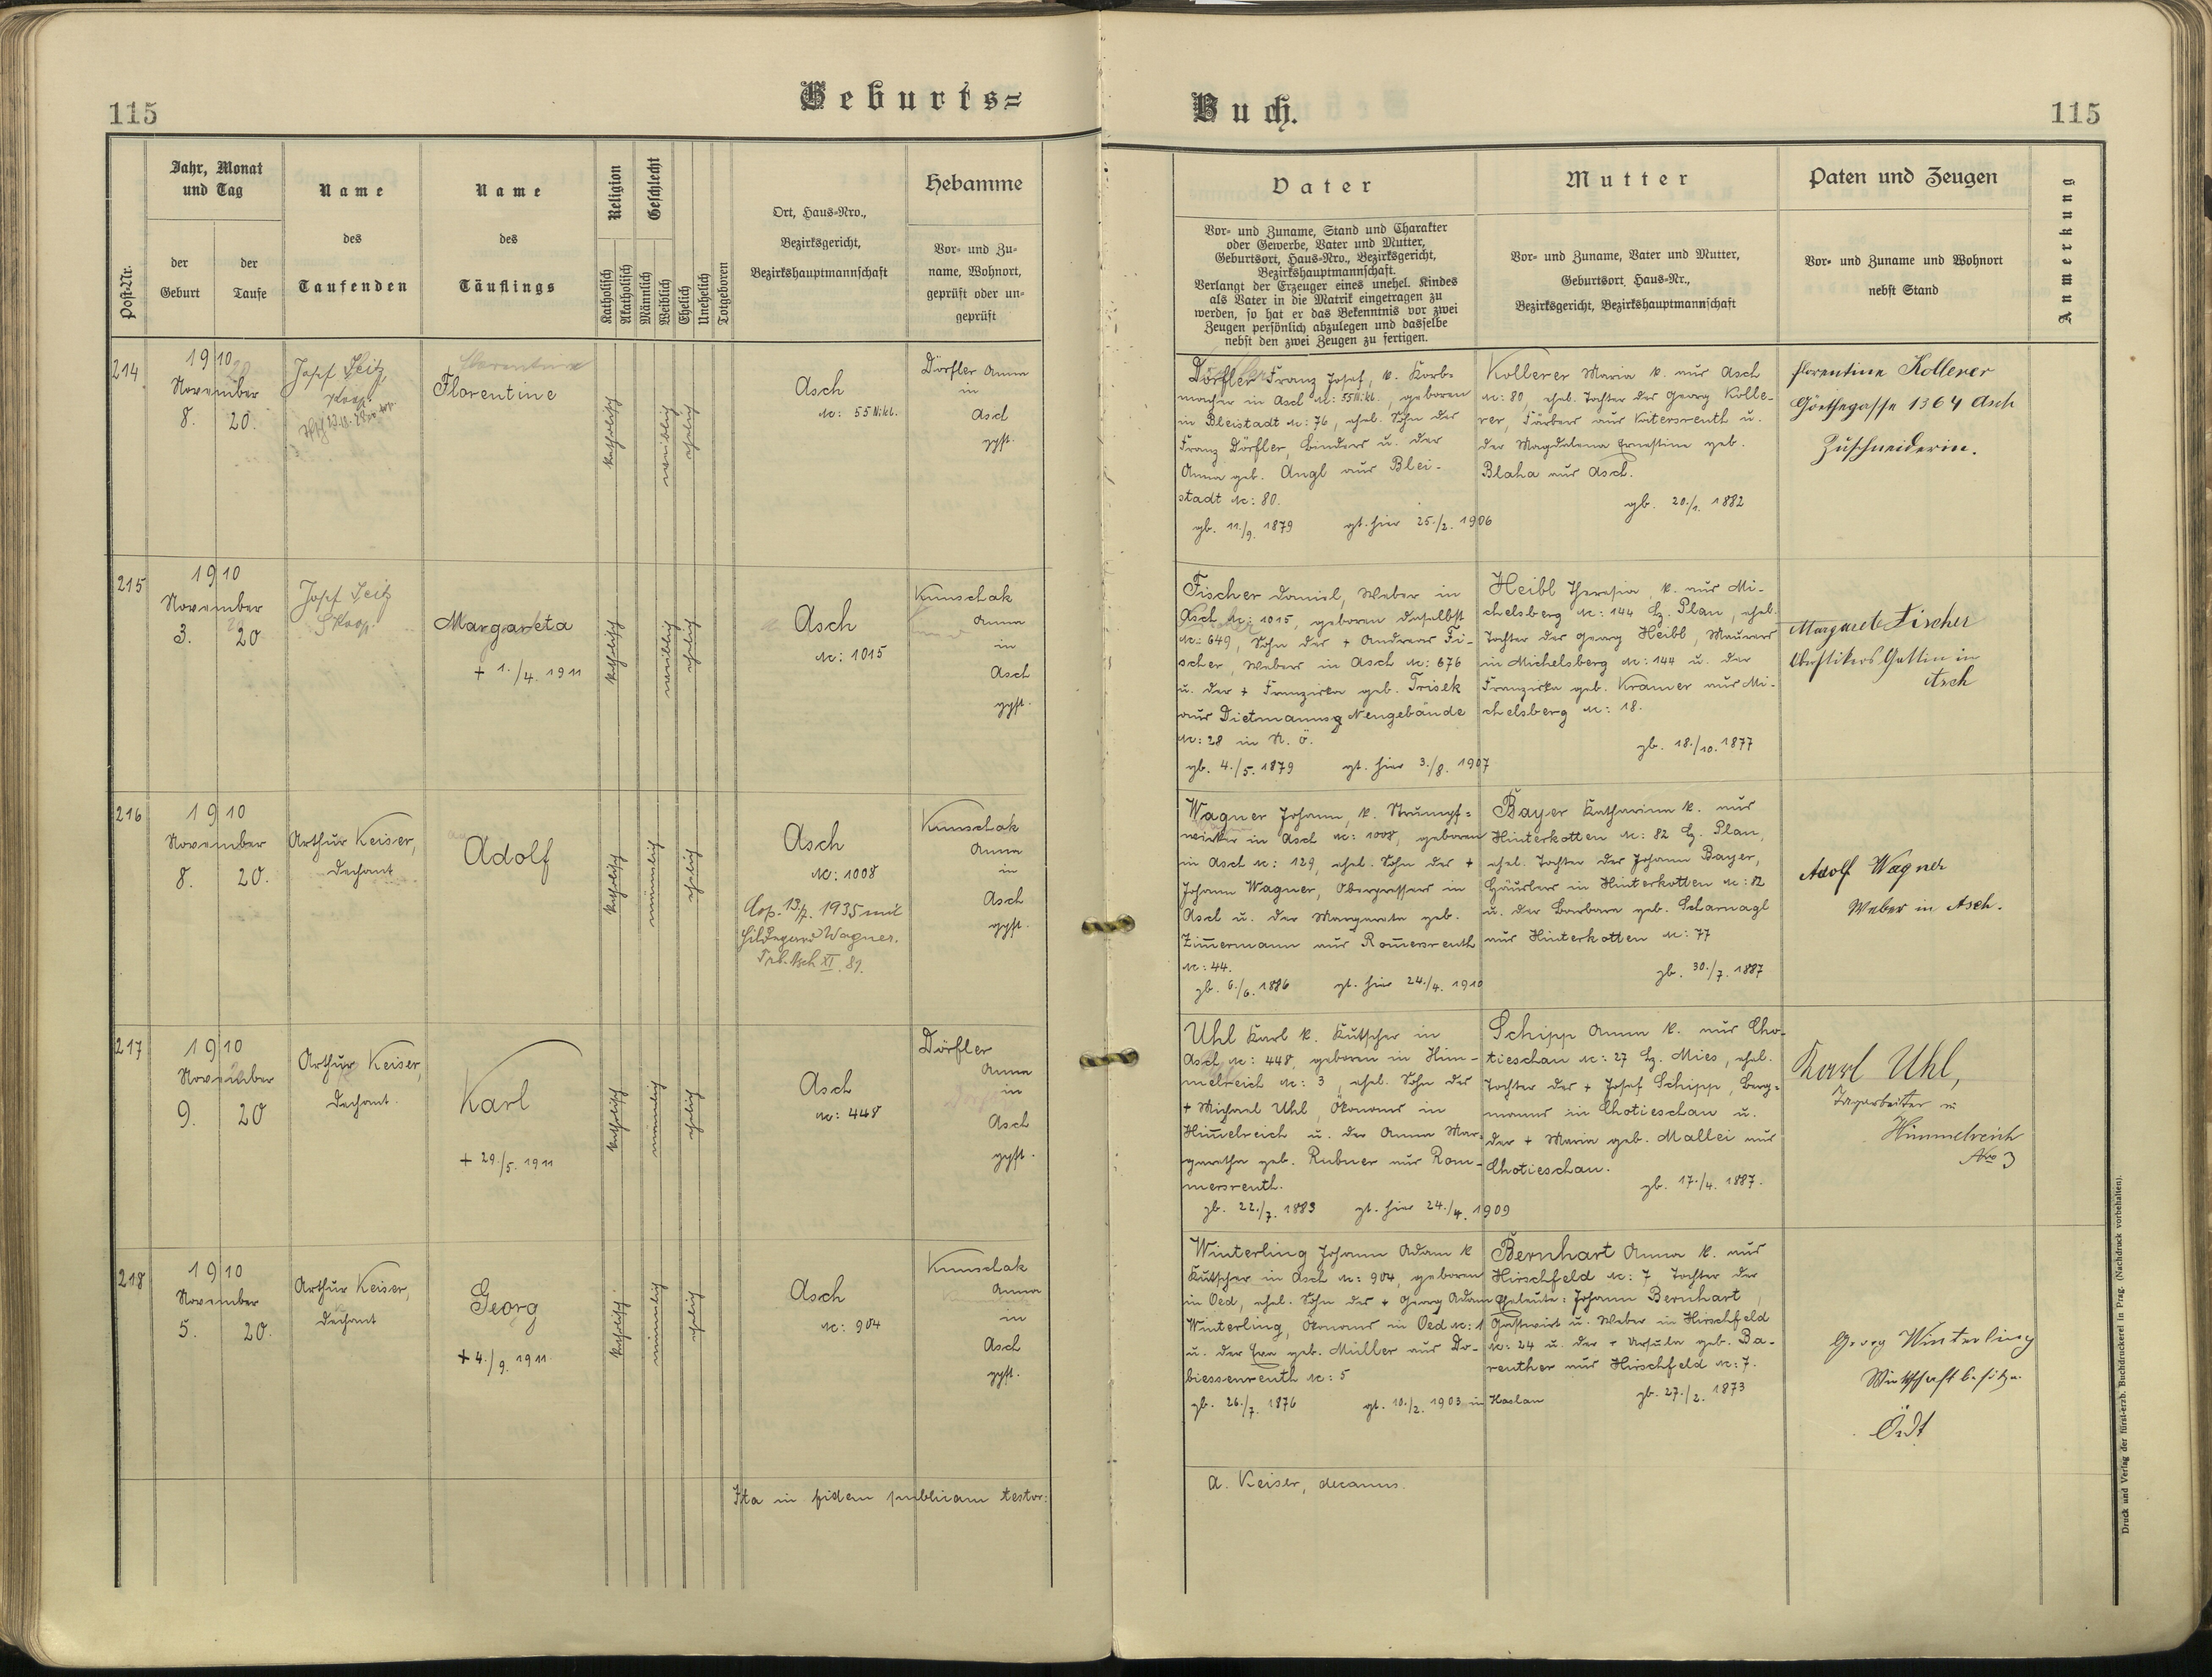 115
Geburts=
Buch.
115
Post-Nr.
Jahr, Monat
und Tag
der
Geburt
der
Taufe
Name
des
Taufenden
Name
des
Täuflings
Religion
Katholisch
Akatholisch
Geschlecht
Männlich
Weiblich
Ehelich
Unehelich
Totgeboren
Ort, Haus-Nro.,
Bezirksgericht,
Bezirkshauptmannschaft
Hebamme
Vor- und Zu-
name, Wohnort,
geprüft oder un-
geprüft
Vater
Vor- und Zuname, Stand und Charakter
oder Gewerbe, Vater und Mutter,
Geburtsort, Haus-Nro., Bezirksgericht,
Bezirkshauptmannschaft.
Verlangt der Erzeuger eines unehel. Kindes
als Vater in die Matrik eingetragen zu
werden, so hat er das Bekenntnis vor zwei
Zeugen persönlich abzulegen und dasselbe
nebst den zwei Zeugen zu fertigen.
Mutter
Vor- und Zuname, Vater und Mutter,
Geburtsort, Haus-Nr.,
Bezirksgericht, Bezirkshauptmannschaft
Paten und Zeugen
Vor- und Zuname und Wohnort
nebst Stand
Anmerkung
214
1910
November
8. 20.
Josef Seitz,
Florentine
katholisch
weiblich
ehelich
Asch
N: 55 Nikl.
Dörfler Anna
in
Asch
gpft.
Dörfler Franz Josef, k. Korb-
macher in Asch N: 55 Nikl., geboren
in Bleistadt N: 76, ehel. Sohn des
Franz Dörfler, Binders u. der
Anna geb. Angl aus Blei-
stadt N: 80.
gb. 11./9. 1879 gt. hier 25./2. 1906
Kollerer Maria k. aus Asch
N: 80, ehel. Tochter des Georg Kolle-
rer, Färbers aus Vitersreuth u.
der Magdalena Ernestine geb.
Blaha aus Asch.
gb. 20./1. 1882
Florentine Kollerer
Göethegasse 1364 Asch
Zuschneiderin.
215
1910
November
3. 20
Josef Seitz
Margareta
+ 1./4. 1911
katholisch
weiblich
ehelich
Asch
N: 1015
Kunschak
Anna
in
Asch
gpft.
Fischer Daniel, Weber in
Asch N: 1015, geboren daselbst
N: 649, Sohn des + Andreas Fi-
scher, Webers in Asch N: 676
u. der + Franziska geb. Trisek
aus Dietmanns, Neugebäude
N: 28 in N. Ö.
gb. 4./5. 1879 gt. hier 3./8. 1907
Heibl Theresia, k. aus Mi-
chelsberg N: 144 Bz. Plan, ehel.
Tochter des Georg Heibl, Maurers
in Michelsberg N: 144 u. der
Franziska geb. Kramer aus Mi-
chelsberg N: 18.
gb. 18./10. 1877
Margarete Fischer
Gattin in
Asch
216
1910
November
8. 20.
Arthur Keiser,
Dechant
Adolf
katholisch
männlich
ehelich
Asch
N: 1008
Cop. 13/7. 1935 mit
Hildegard Wagner.
Trb. Asch XI. 81.
Kunschak
Anna
in
Asch
gpft.
Wagner Johann, k. Strumpf=
wirker in Asch N: 1008, geboren
in Asch N: 129, ehel. Sohn des +
Johann Wagner, in
Asch u. der Margareta geb.
Zim̅ermann aus Rom̅ersreuth
N: 44.
gb. 6./6. 1886 gt. hier 24./4. 1910
Bayer Katharina k. aus
Hinterkotten N: 82 Bz. Plan,
ehel. Tochter des Johann Bayer,
Häuslers in Hinterkotten N: 82
u. der Barbara geb. Scharnagl
aus Hinterkotten N: 77
gb. 30./7. 1887
Adolf Wagner
Weber in Asch.
217
1910
November
9. 20
Arthur Keiser,
Dechant.
Karl
+ 29./5. 1911
katholisch
männlich
ehelich
Asch
N: 448
Dörfler
Anna
in
Asch
gpft.
Uhl Karl k. Kutscher in
Asch N: 448, geboren in Him-
melreich N: 3, ehel. Sohn des
+ Michael Uhl, Ökonoms in
Him̅elreich u. der Anna Mar-
garetha geb. Rubner aus Rom-
mersreuth.
gb. 22./7. 1883 gt. hier 24./4. 1909
Schipp Anna k. aus Cho-
tieschau N: 27 Bz. Mies, ehel.
Tochter des + Josef Schipp, Berg=
manns in Chotieschau u.
der + Maria geb. Mallei aus
Chotieschau.
gb. 17./4. 1887.
Karl Uhl,
Tagarbeiter in
Himmelreich
Nro 3
218
1910
November
5. 20.
Arthur Keiser,
Dechant
Georg
+ 4./9. 1911
katholisch
männlich
ehelich
Asch
N: 904
Kunschak
Anna
in
Asch
gpft.
Winterling Johann Adam k
Kutscher in Asch N: 904, geboren
in Oed, ehel. Sohn des + Georg Adam
Winterling, Ökonoms in Oed N: 1
u. der Eva geb. Müller aus Do-
biessenreuth N: 5
gb. 26./7. 1876 gt. 10./2. 1903 in Haslau
Bernhart Anna k. aus
Hirschfeld N: 7 Tochter der
Eheleute: Johann Bernhart,
Gastwirt u. Weber in Hirschfeld
N: 24 u. der + Ursula geb. Ba-
reuther aus Hirschfeld N: 7.
gb. 27./2. 1873
Georg Winterling
Wirtschaftbesitzer
Ödt
Ita in fidem publicam testor:
A. Keiser, decanus.
Druck und Verlag der fürst-erzb. Buchdruckerei in Prag. (Nachdruck vorbehalten).